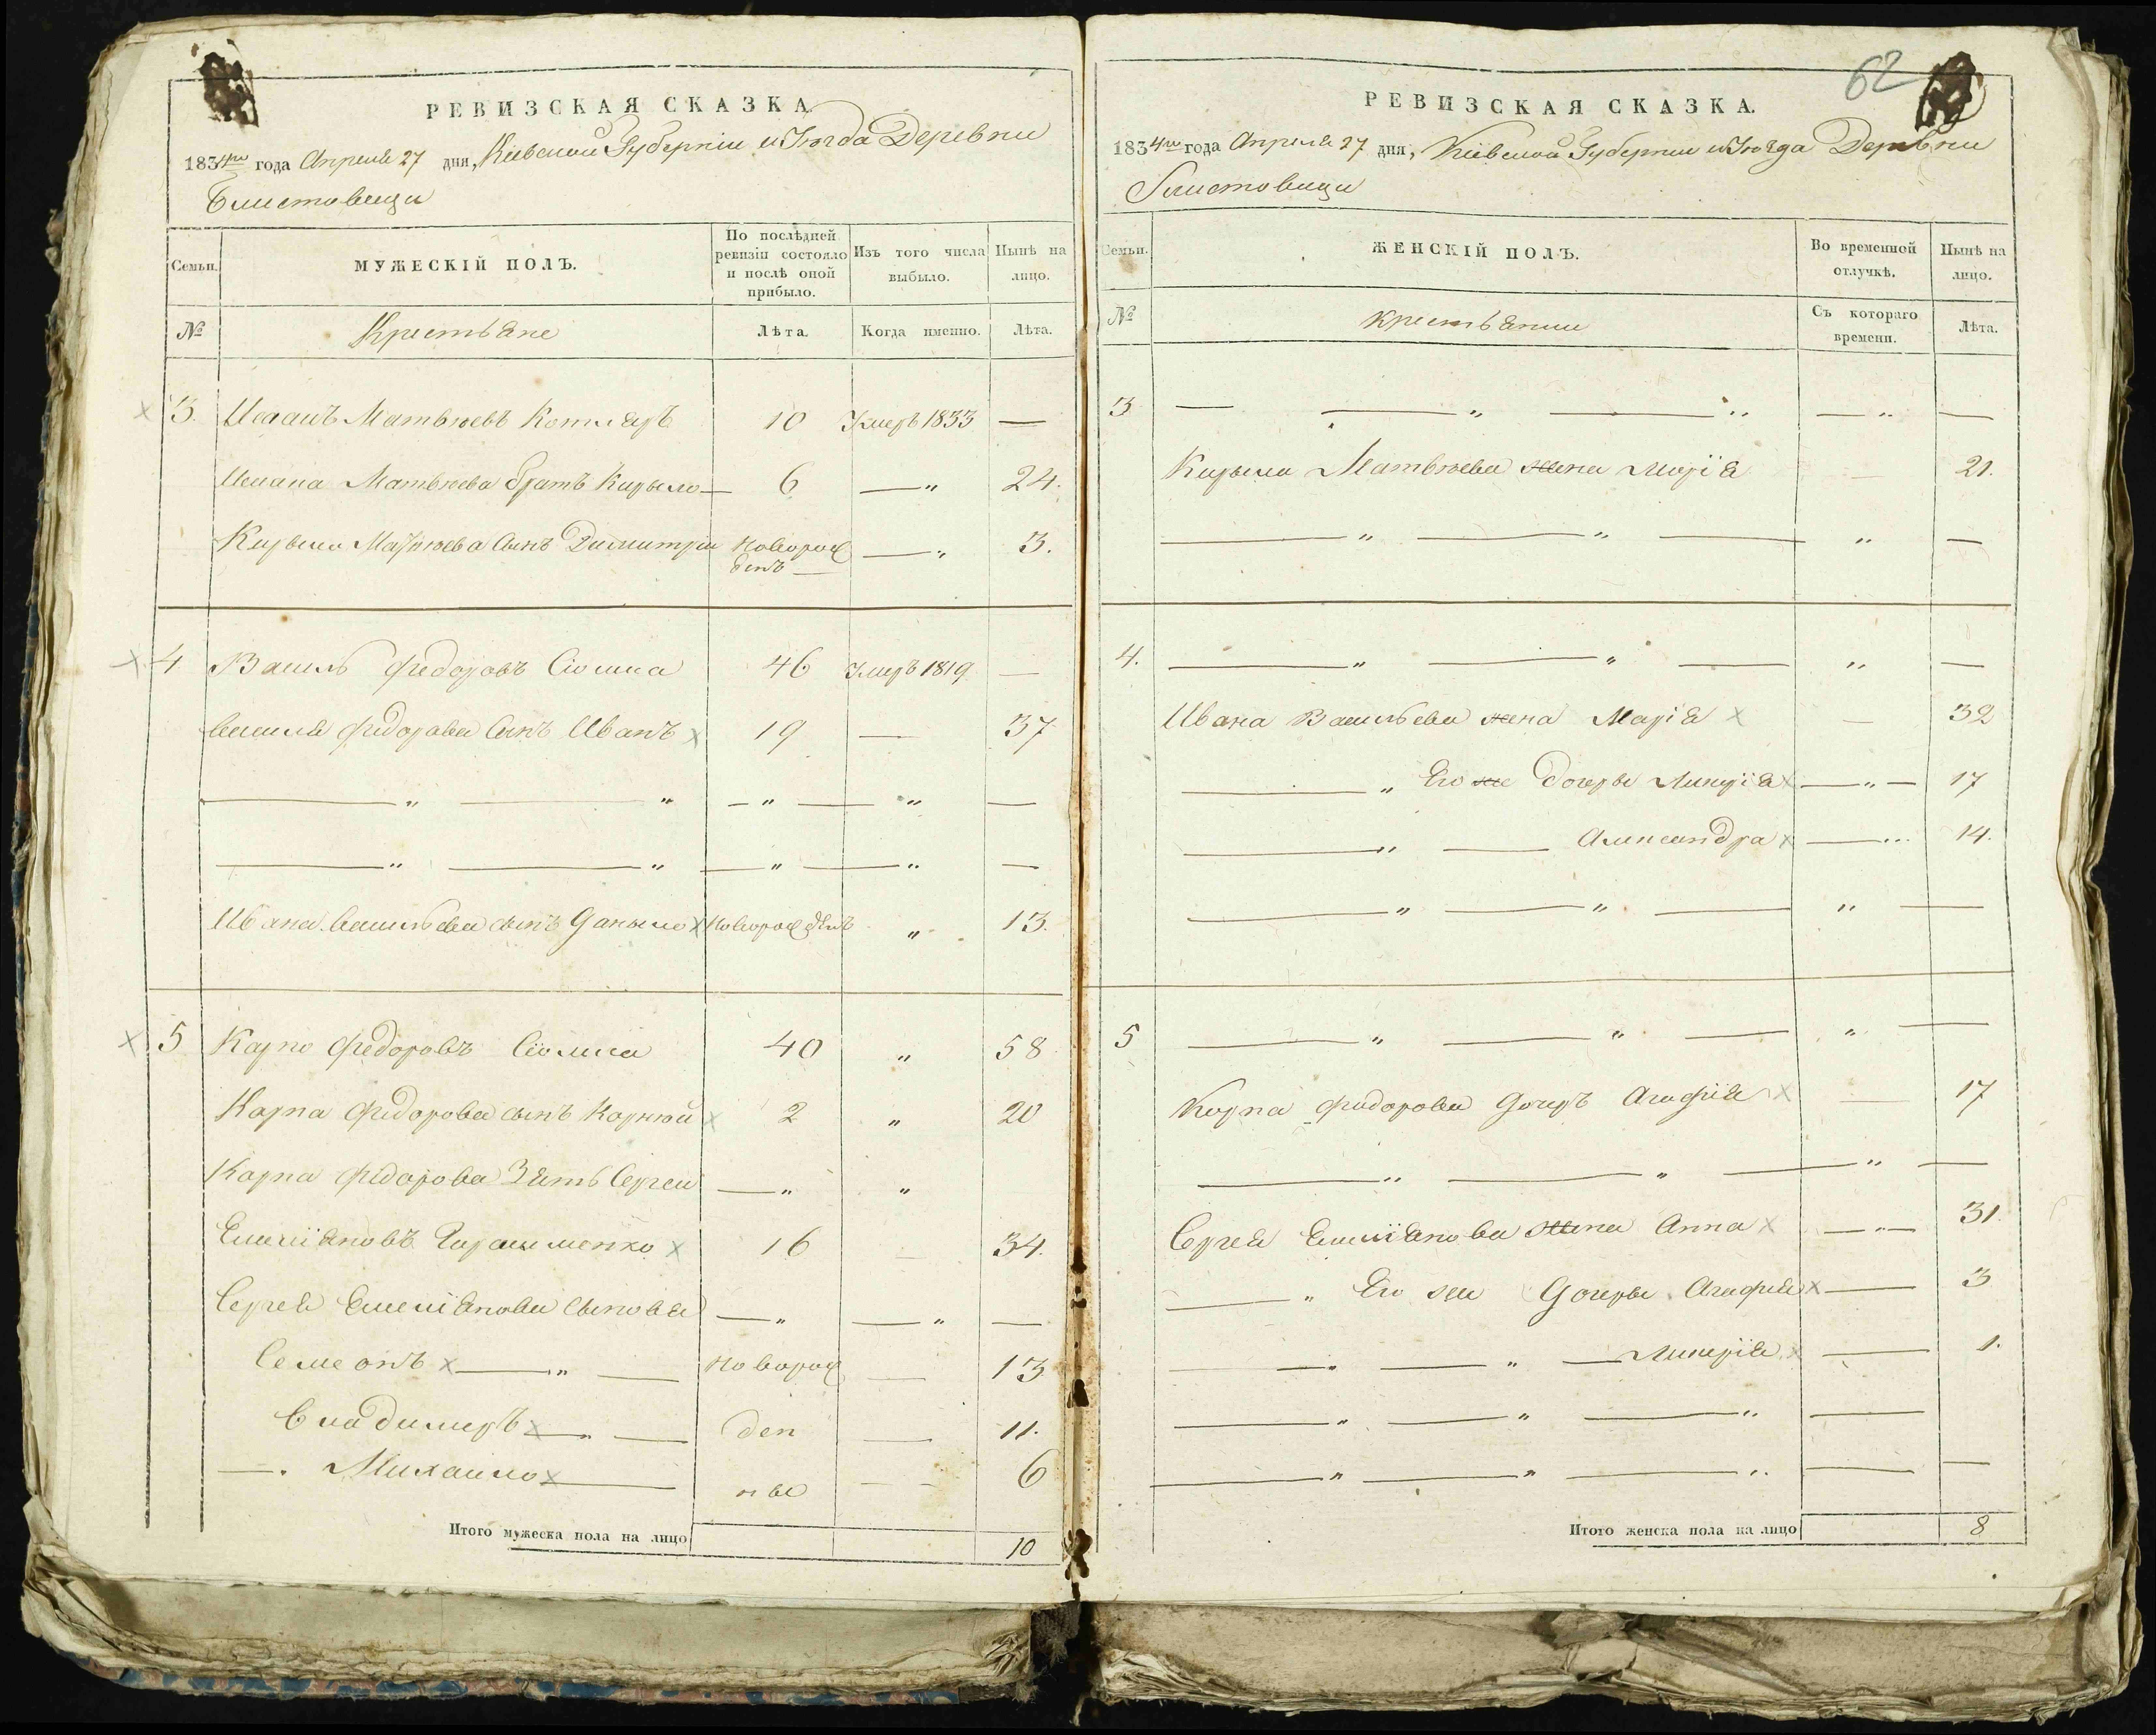 РЕВИЗСКАЯ СКАЗКА
1834го года Апреля 27 дня, Кіевской Губерніи и Уѣзда Деревни
Блиставици
Семьи.
МУЖЕСКІЙ ПОЛЪ.
По послѣдней ревизіи состояло и послѣ оной прибыло.
Изъ того числа выбыло.
Нынѣ на лицо.
№
Крестьяне
Лѣта.
Когда именно.
Лѣта.
3. Матвѣевъ Котляръ 10 Умеръ 1833 —
Матвѣева братъ Кирыло — 6 — „ 24.
Кирыла Матвѣева сынъ Димитрій Новорож — „ 3.
денъ —
4 Василь Федоровъ Сіомка 46 Умеръ 1819 —
Василя Федорова сынъ Иванъ 19 — 37
— „ — „ — „ — „ —
— „ — „ — „ — „ —
Ивана Васильева сынъ Даныло Новорожденъ „ 13.
5 Карпо Федоровъ Сіомка 40 „ 58
Карпа Федорова сынъ Корнѣй 2 „ 20
Карпа Федорова Зять Сергей — „ „
Емеліяновъ Гарасименко 16 — 34.
Сергея Емеліянова сыновья — „ — „ —
Семеонъ — „ — Новорож — 13
Владимеръ — „ — ден — 11.
— „ Михаило — ные — 6
Итого мужеска пола на лицо 10
62
РЕВИЗСКАЯ СКАЗКА.
1834го года Апреля 27 дня, Кіевской Губерніи и Уѣзда Деревни
Блиставици
Семьи.
ЖЕНСКІЙ ПОЛЪ.
Во временной отлучкѣ.
Нынѣ на лицо.
№
Крестьянки
Съ котораго времени.
Лѣта.
3 — — „ — „ — „ —
Кирыла Матвѣева жена Марія — 21.
— „ — „ — „ —
4. — „ — „ — „ —
Ивана Васильева жена Марія — 32
— „ Его же дочеры Лукерія — „ — 17
— „ — Александра — „ 14.
— „ — „ — „ —
5 — „ — „ — „ —
Карпа Федорова дочеръ Агафія — 17
— „ — „ — „ —
Сергея Емеліянова жена Анна — „ — 31.
— „ Его же Дочеры Агафія — 3
— „ — „ — Лукерія — 1.
— „ — „ — „ —
— „ — „ — „ — —
Итого женска пола на лицо 8